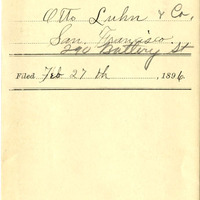 Otto Luhn & Co,
San Francisco.
290 Battery St
Filed Feb 27th, 1896.